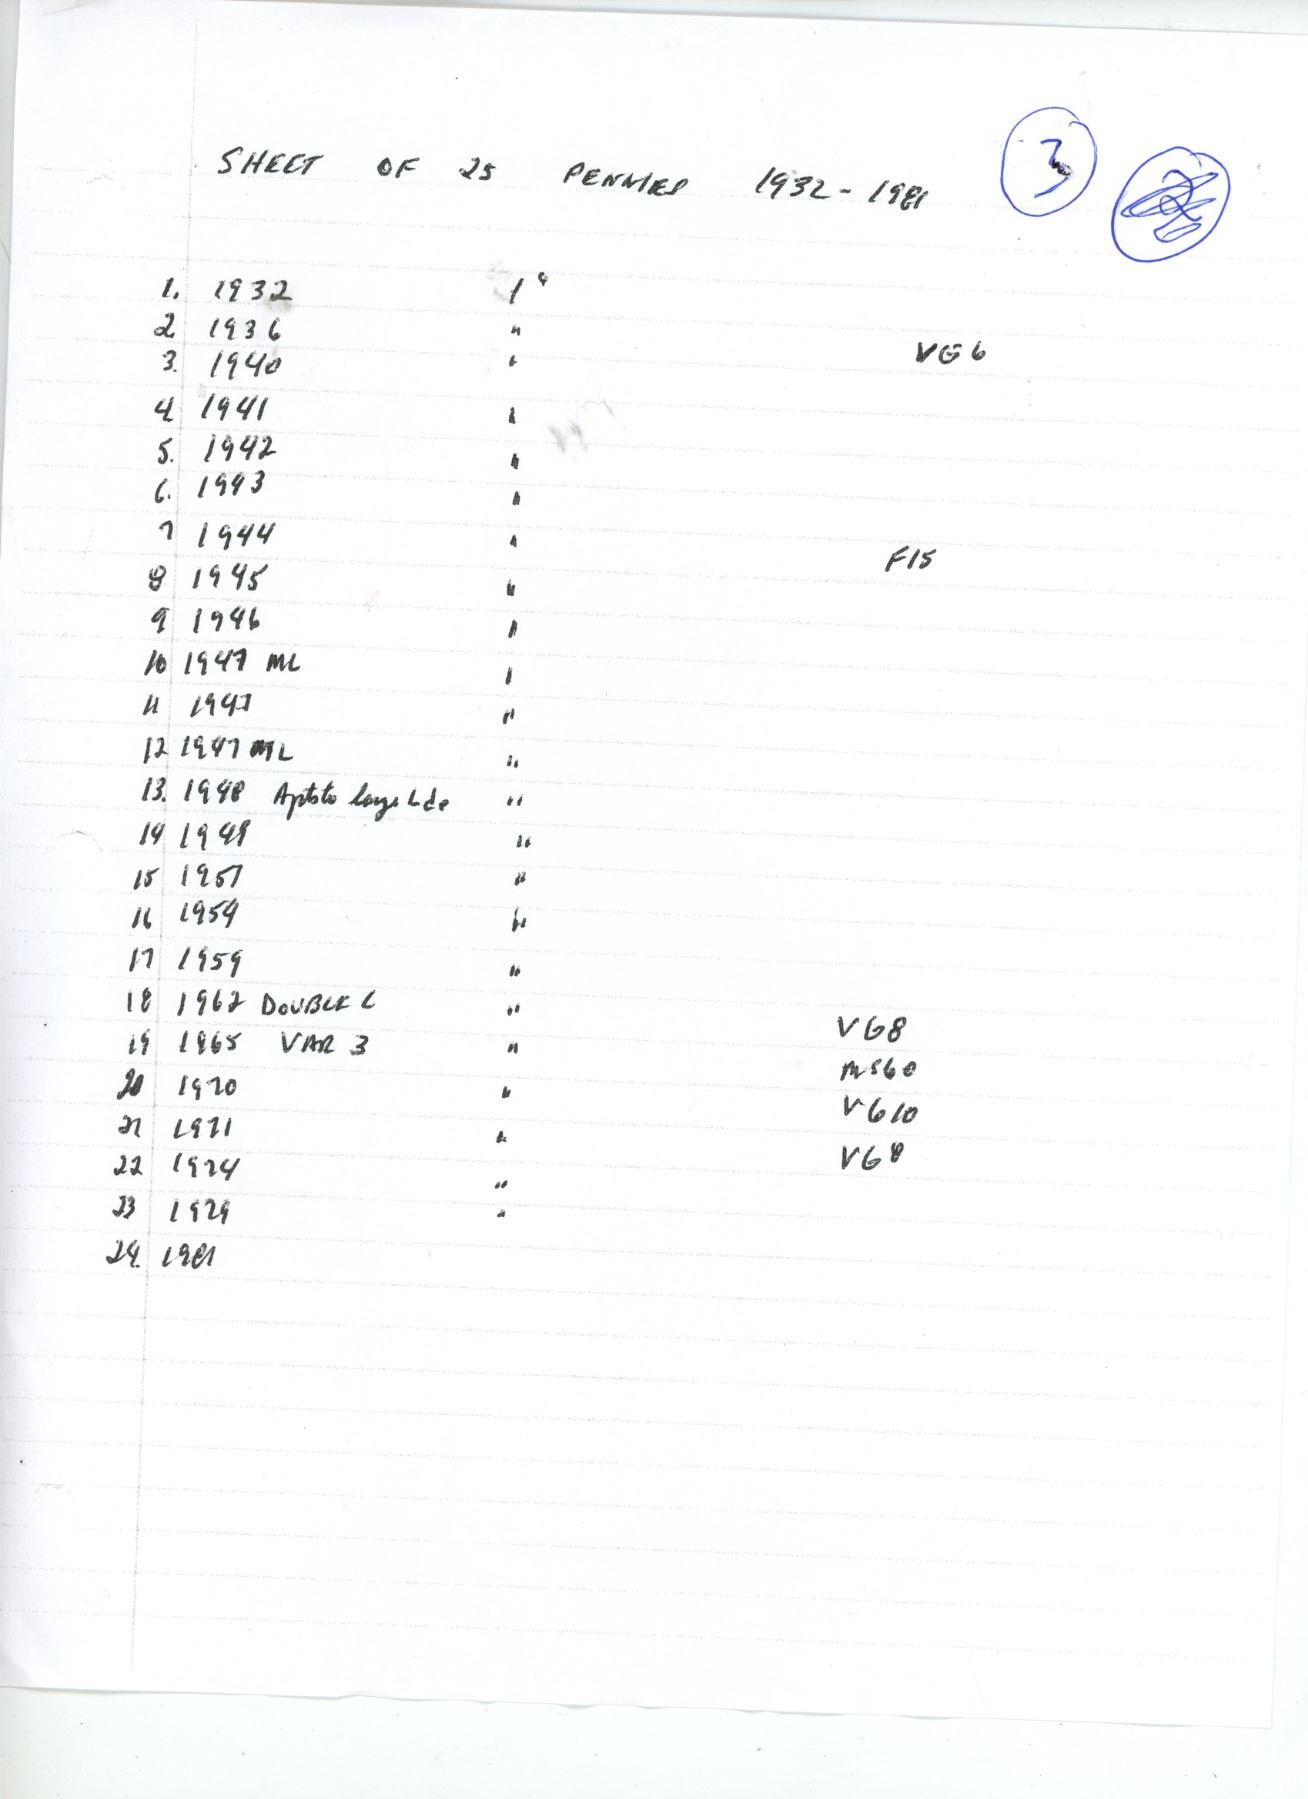 3
SHEET OF 25 PENNIES 1932-1981
1. 1932 1¢
2 1936 "
VG6
3. 1940 "
4 1941 "
5. 1942 "
6. 1943 "
7 1944 "
F15
8 1945 "
9 1946 "
10 1947 ML "
11 1947 "
12 1947 ML "
13. 1948 "
14 1949 "
15 1957 "
16 1959 "
17 1959 "
18 1962 DOUBLE "
VG8
19 1965 VAR 3 "
MS60
20 1970 "
VG10
21 1971 "
VG8
22 1974 "
23 1979 "
24. 1981